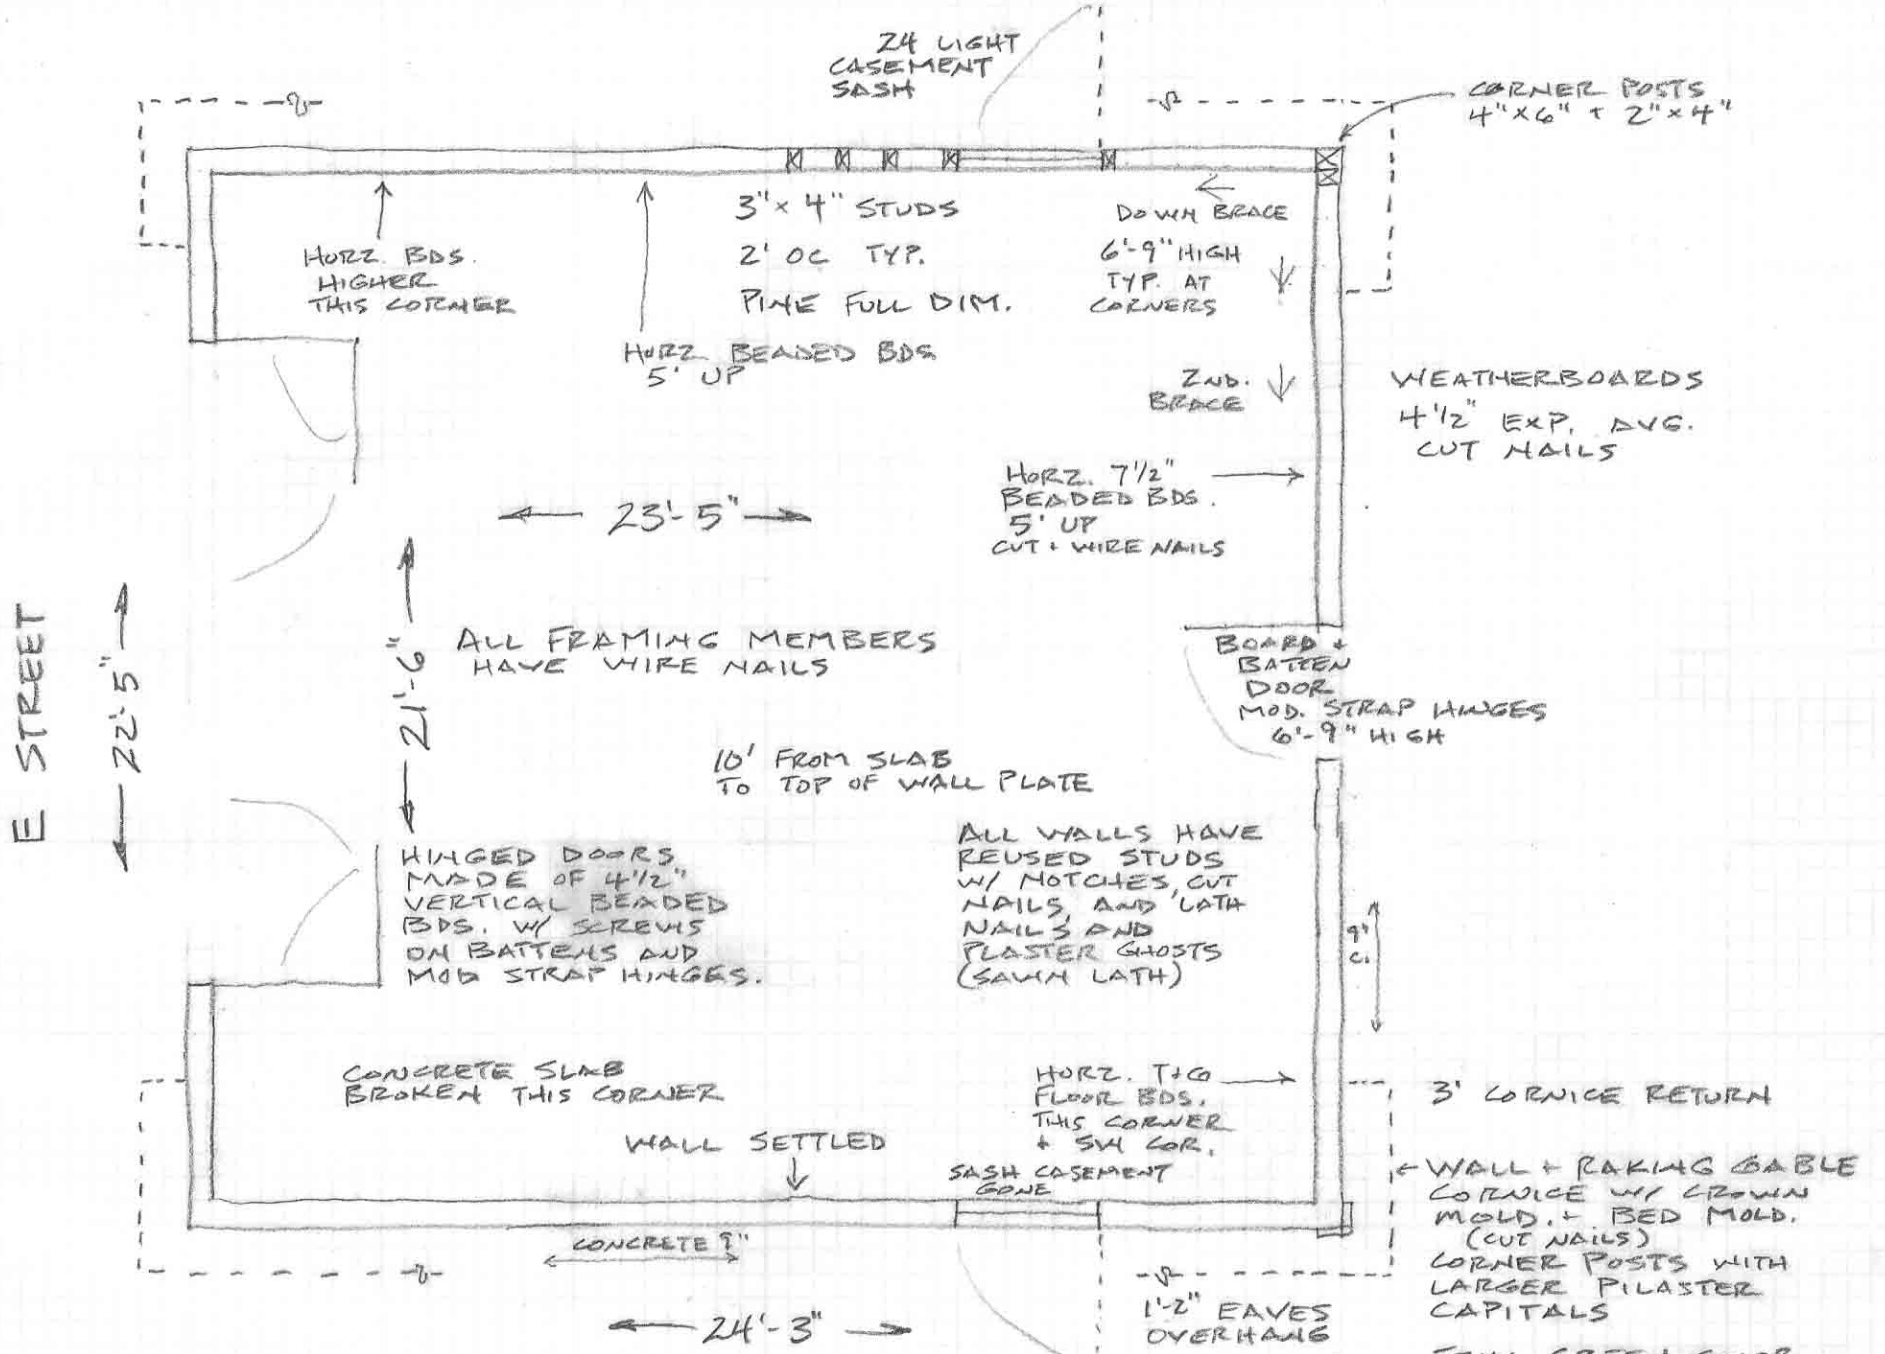 24 LIGHT
CASEMENT
SASH
CORNER POSTS
4"X6" + 2"X4"
3"x 4" STUDS
2' OC TYP.
PINE FULL DIM.
DOWN BRACE
6'-9" HIGH
TYP. AT
CORNERS
HORZ. BDS.
HIGHER
THIS CORNER
HORZ. BEADED BDS
5' UP
2ND.
BRACE
WEATHERBOARDS
4 1/2" EXP. AVG.
CUT NAILS
HORZ. 7 1/2"
BEADED BDS.
5' UP
CUT + WIRE NAILS
23'-5"
E STREET
22'-5"
21'-6"
ALL FRAMING MEMBERS
HAVE WIRE NAILS
BOARD +
BATTEN
DOOR
MOD. STRAP HINGES
6'-9" HIGH
10' FROM SLAB
TO TOP OF WALL PLATE
HINGED DOORS
MADE OF 4 1/2"
VERTICAL BEADED
BDS. W/ SCREWS
ON BATTENS AND
MOD STRAP HINGES.
ALL WALLS HAVE
REUSED STUDS
W/ NOTCHES, CUT
NAILS, AND LATH
NAILS AND
PLASTER GHOSTS
(SAWN LATH)
9"
C.
CONCRETE SLAB
BROKEN THIS CORNER
HORZ. T+G
FLOOR BDS.
THIS CORNER
+ SW COR.
3' CORNICE RETURN
WALL SETTLED
SASH CASEMENT
GONE
WALL + RAKING GABLE
CORNICE W/ CROWN
MOLD. + BED MOLD.
(CUT NAILS)
CORNER POSTS WITH
LARGER PILASTER
CAPITALS
CONCRETE 9"
24'-3"
1'-2" EAVES
OVERHANG